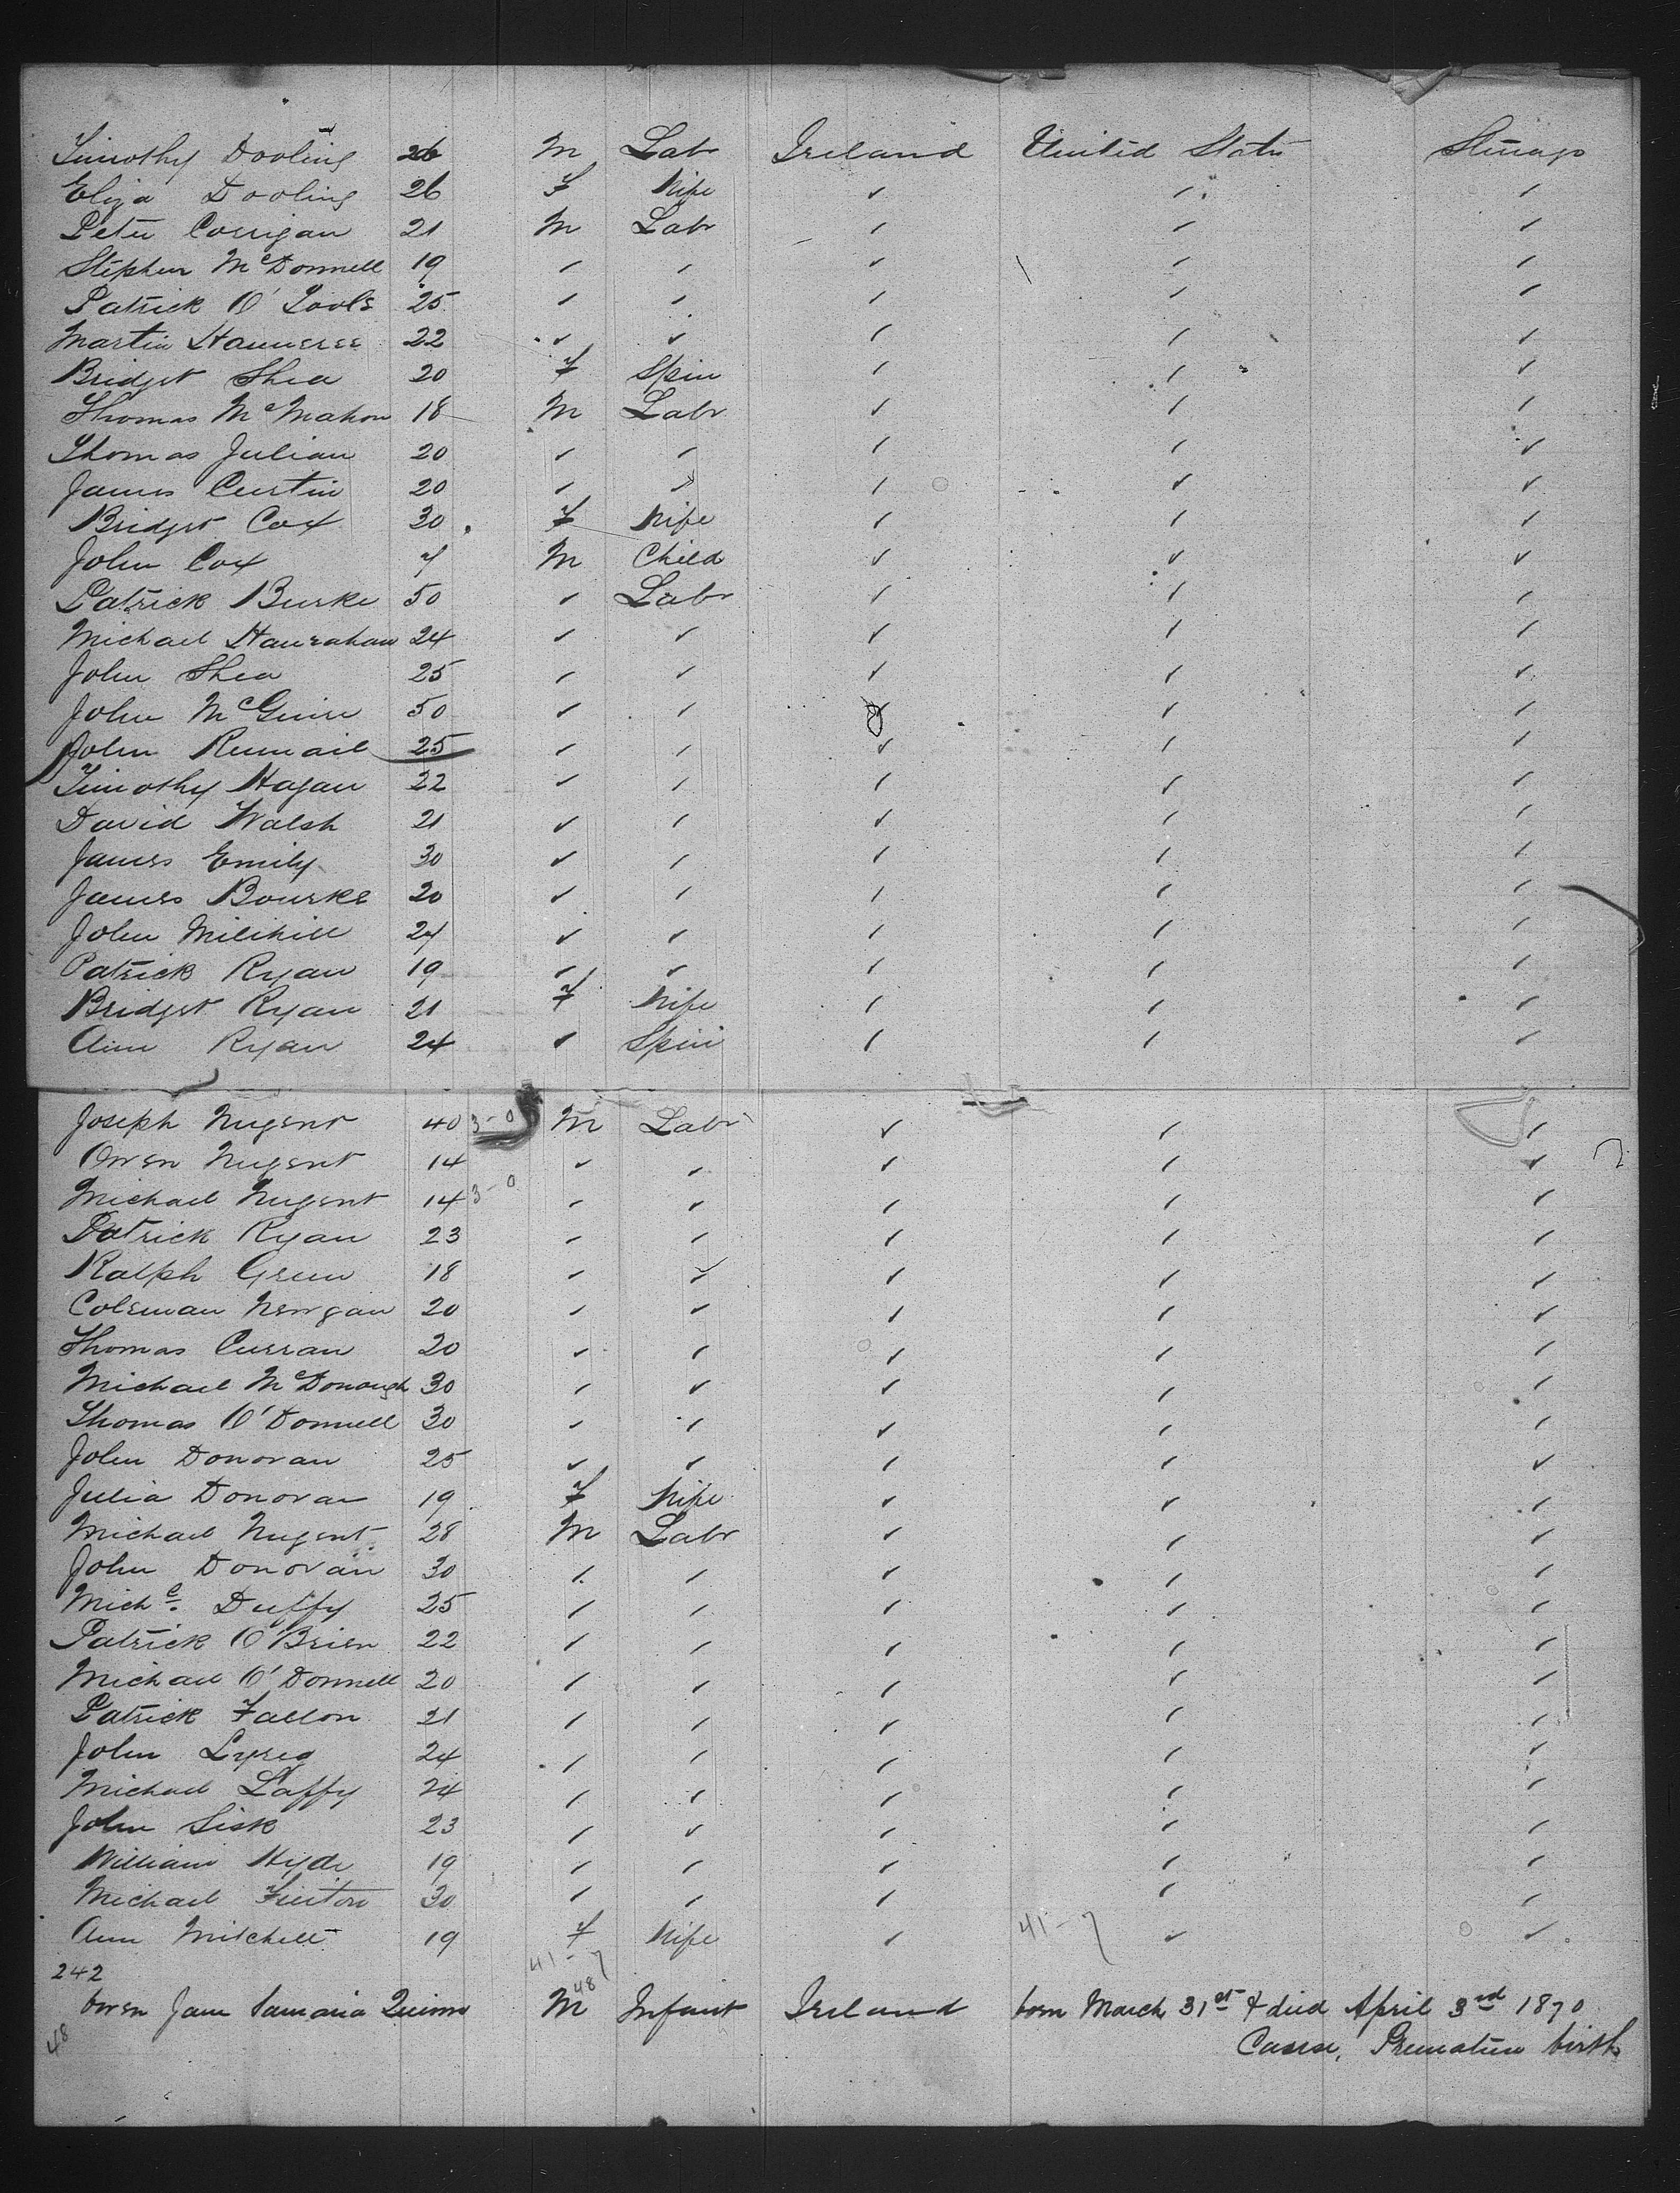 Timothy Dooling 26 M Labr Ireland United States Steerage
Eliza Dooling 26 F Wife ✓ ✓ ✓
Peter Corrigan 21 M Labr ✓ ✓ ✓
Stephen McDonnell 19 ✓ ✓ ✓ ✓ ✓
Patrick O'Toole 25 ✓ ✓ ✓ ✓ ✓
Martin 22 ✓ ✓ ✓ ✓ ✓
Bridget Shea 20 F Spin ✓ ✓ ✓
Thomas McMahon 18 M Labr ✓ ✓ ✓
Thomas Julian 20 ✓ ✓ ✓ ✓ ✓
James Curtin 20 ✓ ✓ ✓ ✓ ✓
Bridget Cox 30 F Wife ✓ ✓ ✓
John Cox 7 M Child ✓ ✓ ✓
Patrick Burke 50 ✓ Labr ✓ ✓ ✓
Michael Hanrahan 24 ✓ ✓ ✓ ✓ ✓
John Shea 25 ✓ ✓ ✓ ✓ ✓
John McGuire 50 ✓ ✓ ✓ ✓ ✓
John 25 ✓ ✓ ✓ ✓ ✓
Timothy Hagan 22 ✓ ✓ ✓ ✓ ✓
David Walsh 21 ✓ ✓ ✓ ✓ ✓
James Emily 30 ✓ ✓ ✓ ✓ ✓
James Bourke 20 ✓ ✓ ✓ ✓ ✓
John 24 ✓ ✓ ✓ ✓ ✓
Patrick Ryan 19 ✓ ✓ ✓ ✓ ✓
Bridget Ryan 21 F Wife ✓ ✓ ✓
Ann Ryan 24 ✓ Spin ✓ ✓ ✓
Joseph Nugent 40 3-0 M Labr ✓ ✓ ✓
Owen Nugent 14 ✓ ✓ ✓ ✓ ✓
Michael Nugent 14 3-0 ✓ ✓ ✓ ✓ ✓
Patrick Ryan 23 ✓ ✓ ✓ ✓ ✓
Ralph Green 18 ✓ ✓ ✓ ✓ ✓
Coleman 20 ✓ ✓ ✓ ✓ ✓
Thomas Curran 20 ✓ ✓ ✓ ✓ ✓
Michael McDonough 30 ✓ ✓ ✓ ✓ ✓
Thomas O'Donnell 30 ✓ ✓ ✓ ✓ ✓
John Donovan 25 ✓ ✓ ✓ ✓ ✓
Julia Donovan 19 F Wife ✓ ✓ ✓
Michael Nugent 28 M Labr ✓ ✓ ✓
John Donovan 30 ✓ ✓ ✓ ✓ ✓
Michl. Duffy 25 ✓ ✓ ✓ ✓ ✓
Patrick O'Brien 22 ✓ ✓ ✓ ✓ ✓
Michael O'Donnell 20 ✓ ✓ ✓ ✓ ✓
Patrick Fallon 21 ✓ ✓ ✓ ✓ ✓
John 24 ✓ ✓ ✓ ✓ ✓
Michael Laffy 24 ✓ ✓ ✓ ✓ ✓
John Sisk 23 ✓ ✓ ✓ ✓ ✓
William Hyde 19 ✓ ✓ ✓ ✓ ✓
Michael 30 ✓ ✓ ✓ ✓ ✓
Ann Mitchell 19 F Wife ✓ 41-7 ✓ ✓
242 41-7
48
Owen Jane Samaria Quinn M Infant Ireland born March 31st & died April 3rd 1870
48 Cause, Premature birth